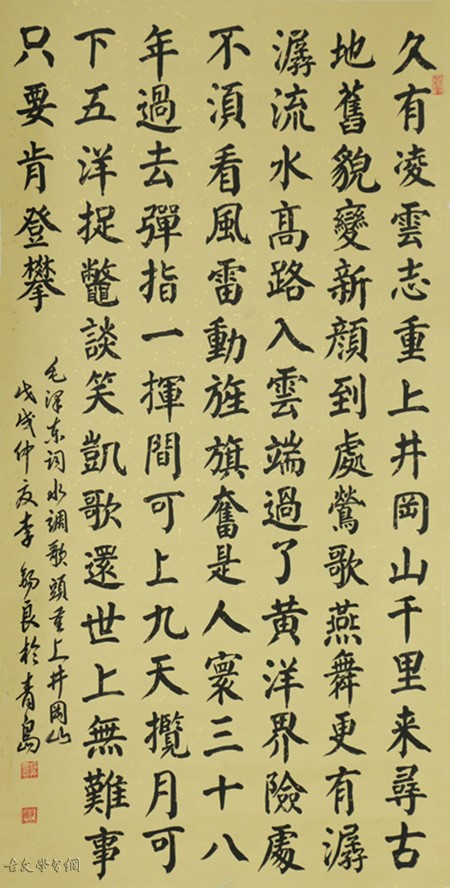 久有凌雲志重上井岡山千里来尋古
地舊貌變新顔到處鶯歌燕舞更有潺
潺流水高路入雲端過了黄洋界險處
不湏看風雷動旌旗奮是人寰三十八
年過去彈指一揮間可上九天攬月可
下五洋捉鱉談笑凱歌還世上無難事
只要肯登攀
毛澤东词水調歌頭重上井岡山
戊戌仲夏李錫良於青島
古文學習網